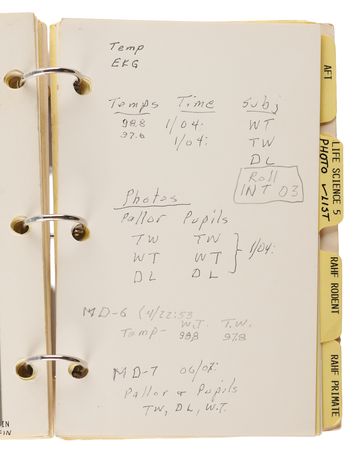 Temp
EKG
Temps Time Subj
98.8 1/04: WT
97.6 1/04: TW
DL
Roll
INT 03
Photos
Pallor Pupils
TW TW
WT WT } 1/04:
DL DL
MD-6 (4/22:53
W.T. T.W.
Temp- 98.8 97.8
MD-7 06/07:
Pallor & Pupils
TW, DL, W.T.
AFT
LIFE SCIENCE 5
PHOTO ✓LIST
RAHF RODENT
RAHF PRIMATE